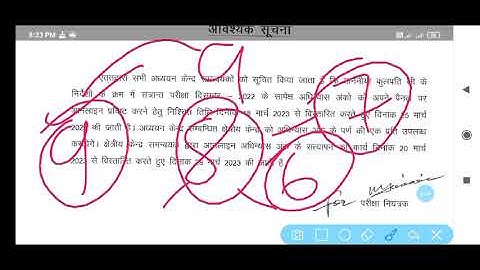 3:23 PM
आवश्यक सूचना
एतद्द्वारा सभी अध्ययन केन्द्र समन्वयकों को सूचित किया जाता है कि माननीया कुलपति जी के
निर्देशों के क्रम में सत्रान्त परीक्षा दिसम्बर – 2022 के सापेक्ष अधिन्यास अंकों को अपने पैनल पर
आनलाइन प्रविष्ट करने हेतु निश्चित तिथि दिनांक मार्च 2023 से विस्तारित करते हुए दिनांक मार्च
की जाती है। अध्ययन केन्द्र सम्बन्धित क्षेत्रीय केन्द्र को अधिन्यास अंक के पर्ण की एक प्रति उपलब्ध
करायेंगे। क्षेत्रीय केन्द्र समन्वयक द्वारा आनलाइन अधिन्यास अंक के सत्यापन का कार्य दिनांक 20 मार्च
2023 से विस्तारित करते हुए दिनांक मार्च 2023 की जाती है
9
9
8
7
6
for
परीक्षा नियंत्रक